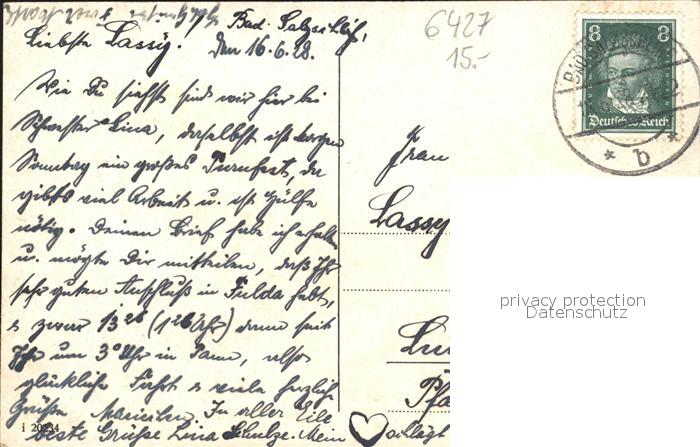 Bad. Salzschlirf,
den 16.6.28.
Liebste Lassy.
Wie Du siehst sind wir hier bei
Schwester Lina, daselbst ist morgen
Sonntag ein großes Turnfest, da
gibts viel Arbeit u. ist Hülfe
nötig. Deinen Brief habe ich erhalten
u. mögte Dir mitteilen, daß Ihr
sehr guten Anschluß in Fulda habt,
u zwar 13 26 (1 26 Uhr) dann seit
Ihr um 3 0 Uhr in , also
glückliche Fahrt u viele herzliche
Grüße . In aller Eile
beste Grüße Lina Schulze. Mein
schlägt
i 20234
6427
15.-
8 8
Deutsches Reich
* b *
Frau
Lassy
Lu
Pfa
privacy protection
Datenschutz